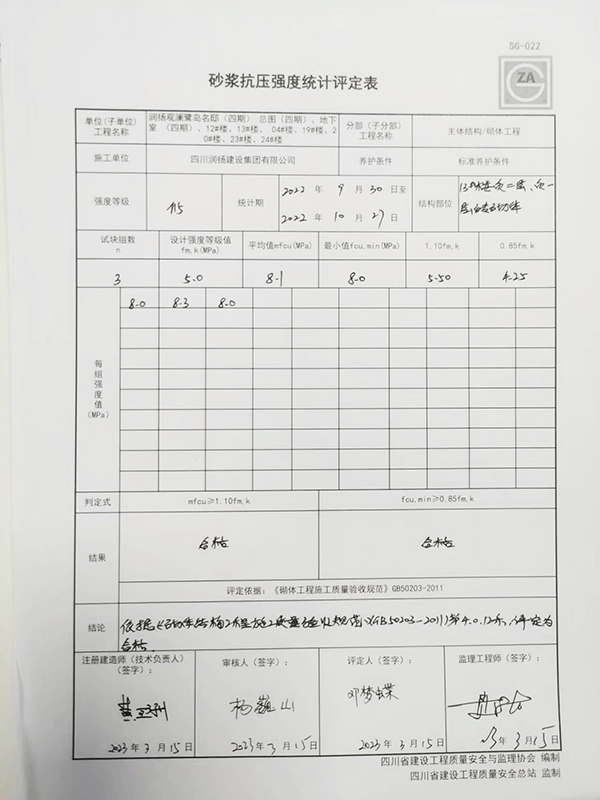 SG-022
ZA
砂浆抗压强度统计评定表
单位(子单位)
工程名称
润扬观澜鹭岛名邸（四期） 总图（四期）、地下
室 （四期）、12#楼、13#楼、 04#楼、19#楼、2
0#楼、23#楼、24#楼
分部（子分部）
工程名称
主体结构/砌体工程
施工单位
四川润扬建设集团有限公司
养护条件
标准养护条件
强度等级
M5
统计期
2022 年 9 月 30 日至
2022 年 10 月 27 日
结构部位
13#楼
试块组数
n
设计强度等级值
fm,k(MPa)
平均值mfcu(MPa)
最小值fcu,min(MPa)
1.10fm,k
0.85fm,k
3
5.0
8.1
8.0
5.50
4.25
每组强度值
(MPa)
8.0 8.3 8.0
判定式
mfcu≥1.10fm,k
fcu,min≥0.85fm,k
结果
合格
合格
评定依据:《砌体工程施工质量验收规范》GB50203-2011
结论
依据《砌体结构工程施工质量验收规范》(GB50203-2011)第4.0.12条,评定为
合格.
注册建造师（技术负责人）
（签字）:
审核人（签字）:
评定人（签字）:
监理工程师（签字）:
杨巍山
邓梦蝶
2023年 3 月 15 日
2023年 3 月 15 日
2023年 3 月 15 日
年 3 月 15 日
四川省建设工程质量安全与监理协会 编制
四川省建设工程质量安全总站 监制